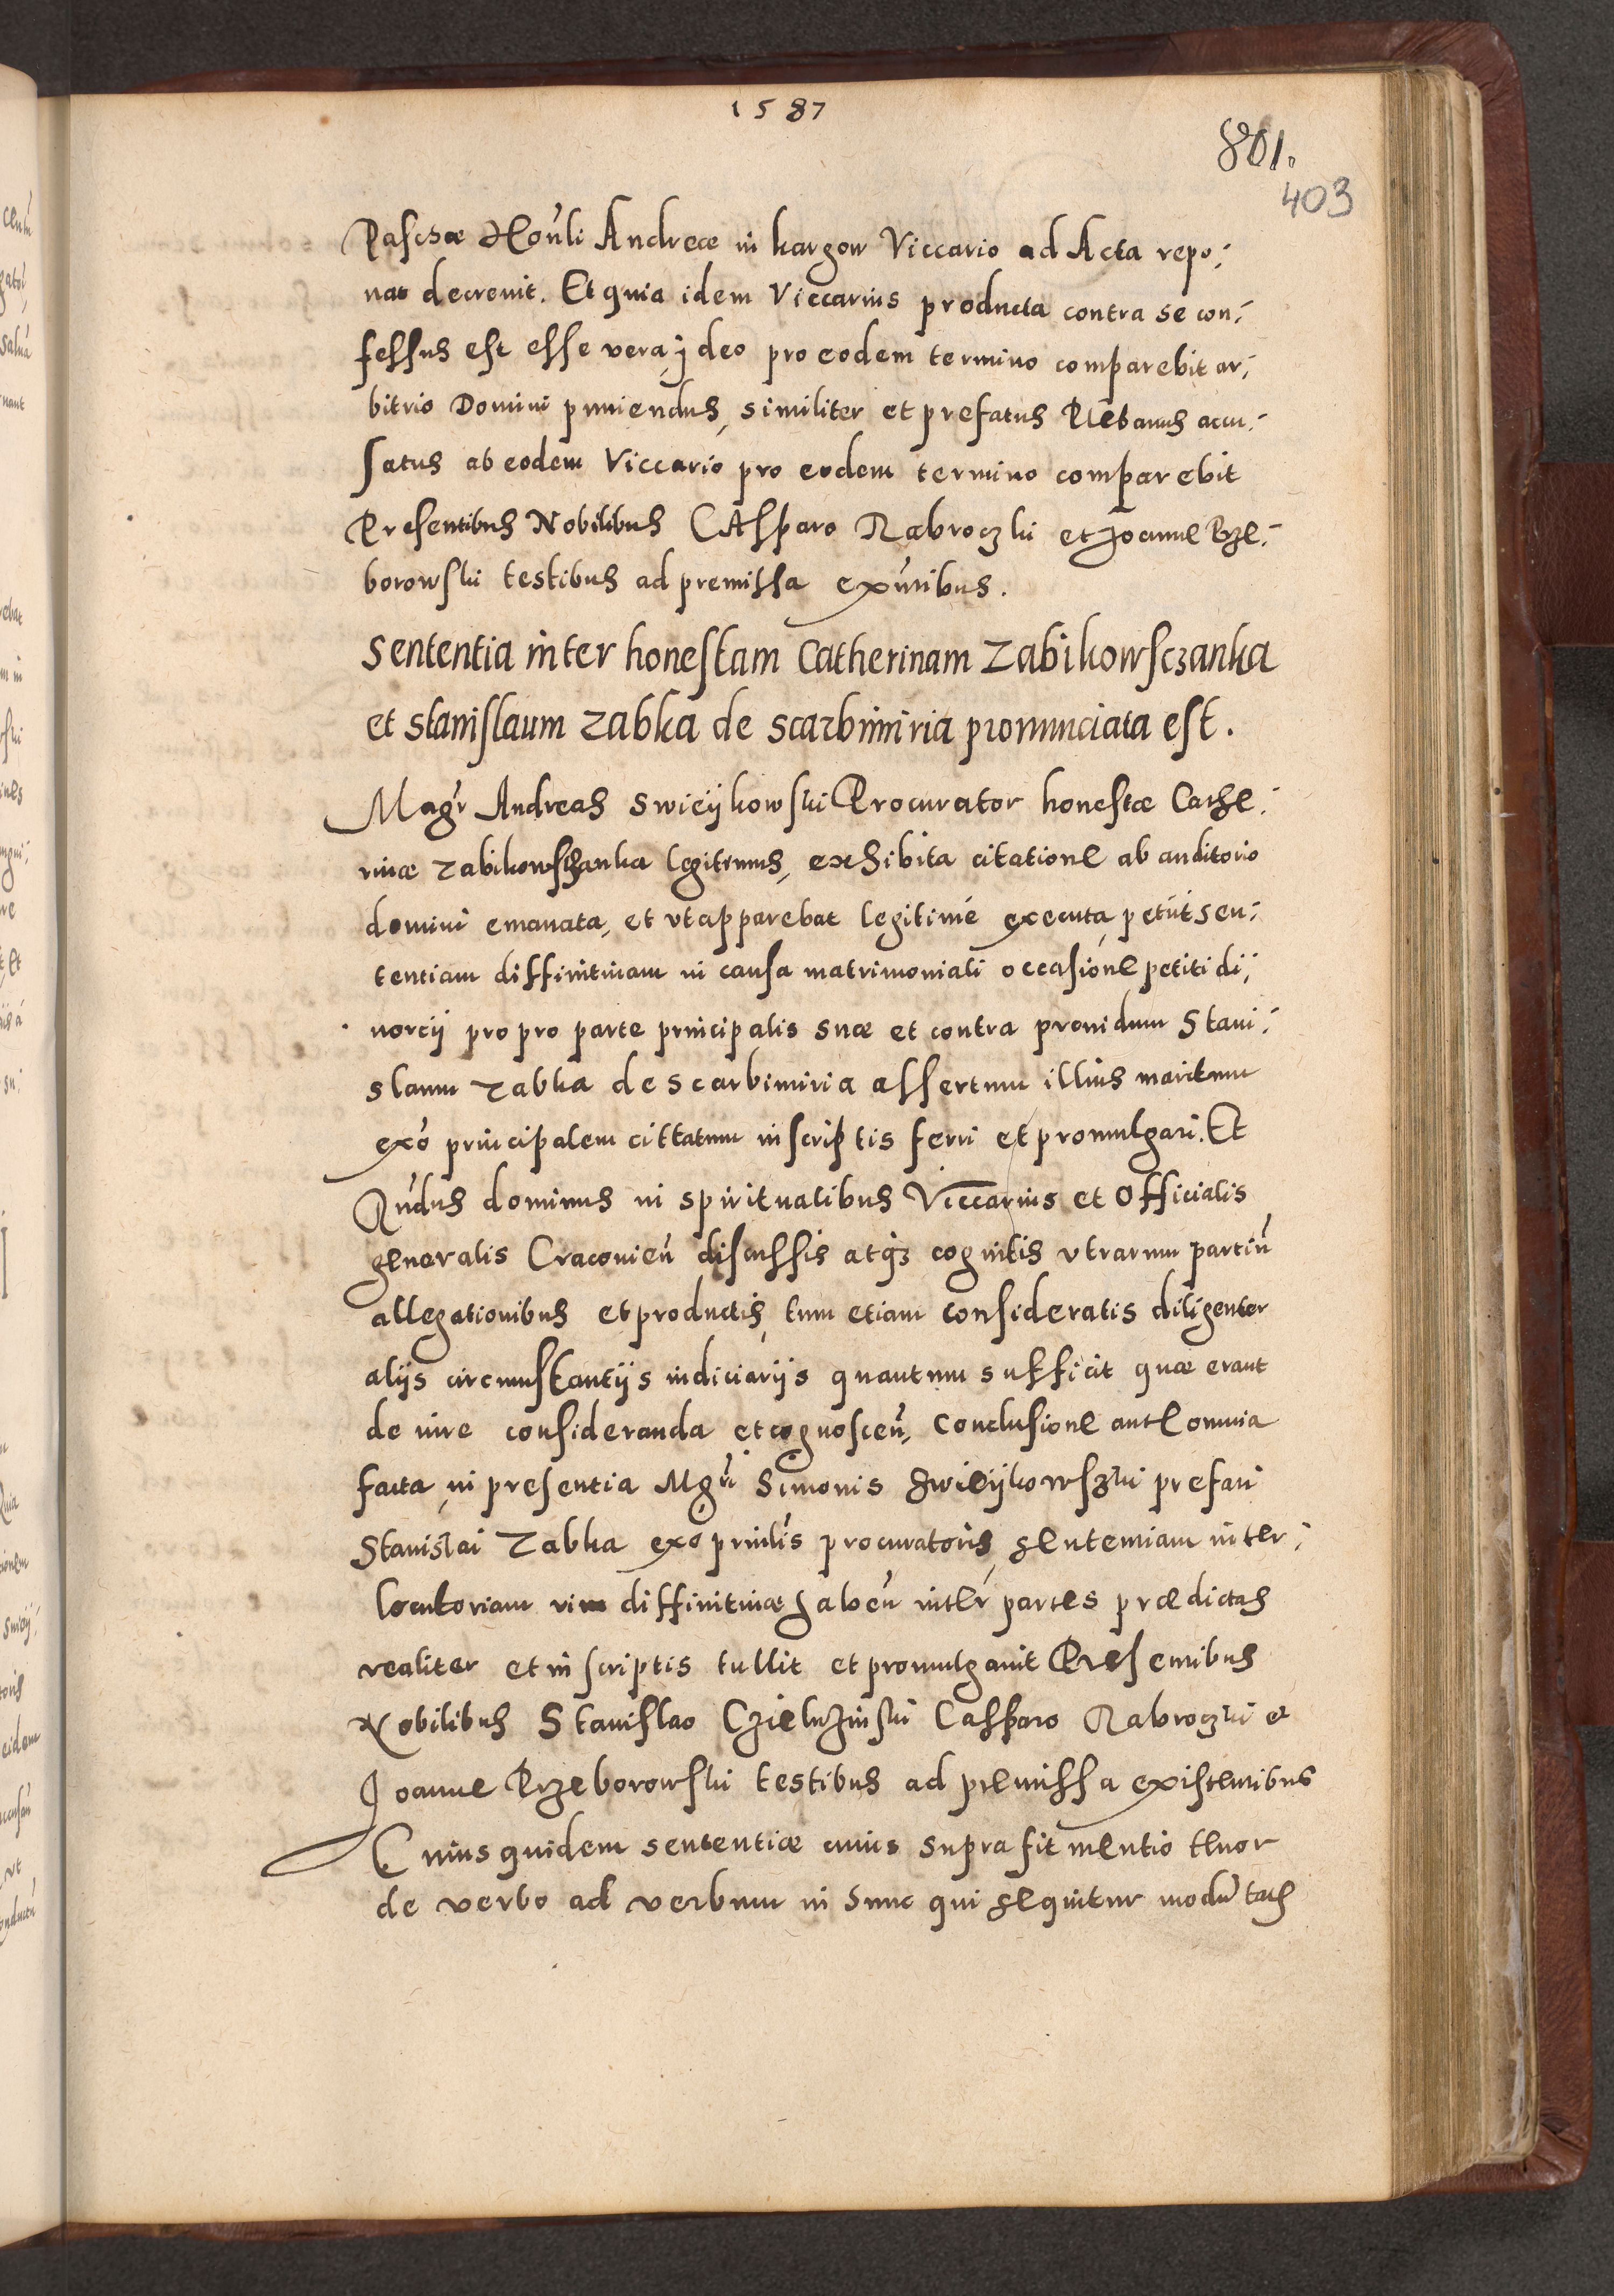 1587
801.
403
Paschæ Hon̄li Andreæ in kargow Viccario ad Acta repo:
nat decrevit. Et quia idem Viccarius producta contra se con:
fessus est esse vera, jdeo pro eodem termino comparebit ar:
bitrio Domini puniendus, similiter et prefatus Plebanus accu:
satus ab eodem Viccario pro eodem termino comparebit
Presentibus Nobilibus Casparo Nabroczki et Joanne Prze:
borowski testibus ad premissa exn̄tibus.
Sententia inter honestam Catherinam Zabikowsczanka
et Stanislaum Zabka de Scarbimiria pronunciata est.
Magr̄ Andreas Swieijkowski Procurator honestæ Cathe:
rinæ Zabikowsczanka legitimus, exhibita citatione ab auditorio
domini emanata, et vt apparebat legitimé executa, petiit sen:
tentiam diffinitiuam in causa matrimoniali occasione petiti di:
uorcij pro pro parte principalis suæ et contra prouidum Stani:
slaum Zabka de Scarbimiria assertum illius maritum
exō principalem cittatum in scriptis ferri et promulgari. Et
Rn̄dus dominus in spiritualibus Viccarius et Officialis
generalis Cracouien̄ discussis atq̄ꝫ cognitis vtrarum partiū
allegationibus et productis, tum etiam consideratis diligenter
alijs circumstantijs iudiciarijs quantum sufficit quæ erant
de iure consideranda et cognoscen̄, Conclusione ante omnia
facta, in presentia Mgr̄i Simonis Swieijkowszki prefati
Stanislai Zabka exō prin̄lis procuratoris, sententiam inter:
locutoriam vim diffinitiuæ haben̄ inter partes prædictas
realiter et in scriptis tullit et promulgauit Presentibus
Nobilibus Stanislao Czieluzinski Casparo Nabroczki et
Joanne Przeborowski testibus ad premissa existentibus
Cuius quidem sententiæ cuius supra fit mentio tenor
de verbo ad verbum in hunc qui sequitur modū talis